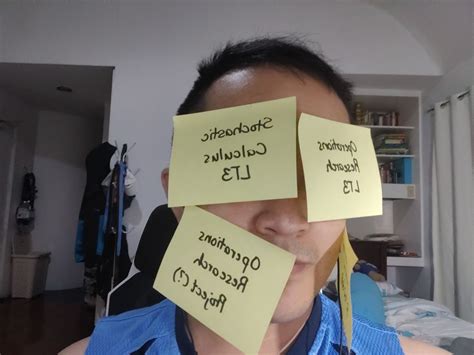 Stochastic
Calculus
LT3
Operations
Research
LT3
Operations
Research
Project(?)